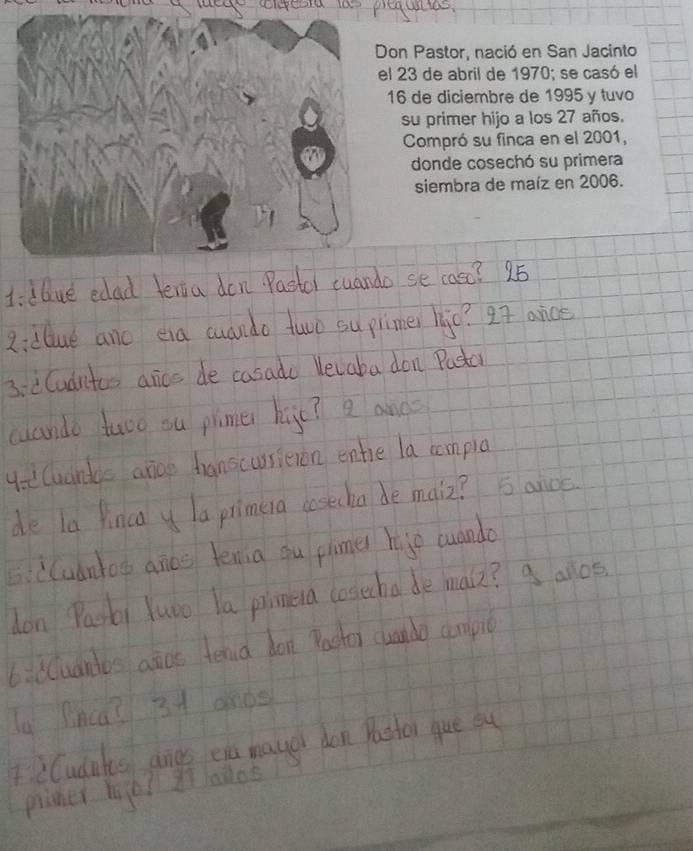 y luego contesta las preguntas.
Don Pastor, nació en San Jacinto
el 23 de abril de 1970; se casó el
16 de diciembre de 1995 y tuvo
su primer hijo a los 27 años.
Compró su finca en el 2001,
donde cosechó su primera
siembra de maíz en 2006.
1:¿Qué edad tenia don Pastor cuando se caso? 25
2:¿Qué ano era cuando tuvo su primer hijo? 27 años
3:¿Cuántos años de casado llevaba don Pastor
cuando tuvo su primer hijo? 2 años
4:¿Cuántos años transcurrieron entre la compra
de la finca y la primera cosecha de maiz? 5 años.
5:¿Cuántos años tenia su primer hijo cuando
don Pastor tuvo la primera cosecha de maiz? 9 años.
6:¿Cuántos años tenia don Pastor cuando compró
la finca? 31 años
7:¿Cuántos años era mayor don Pastor que su
primer hijo? 27 años